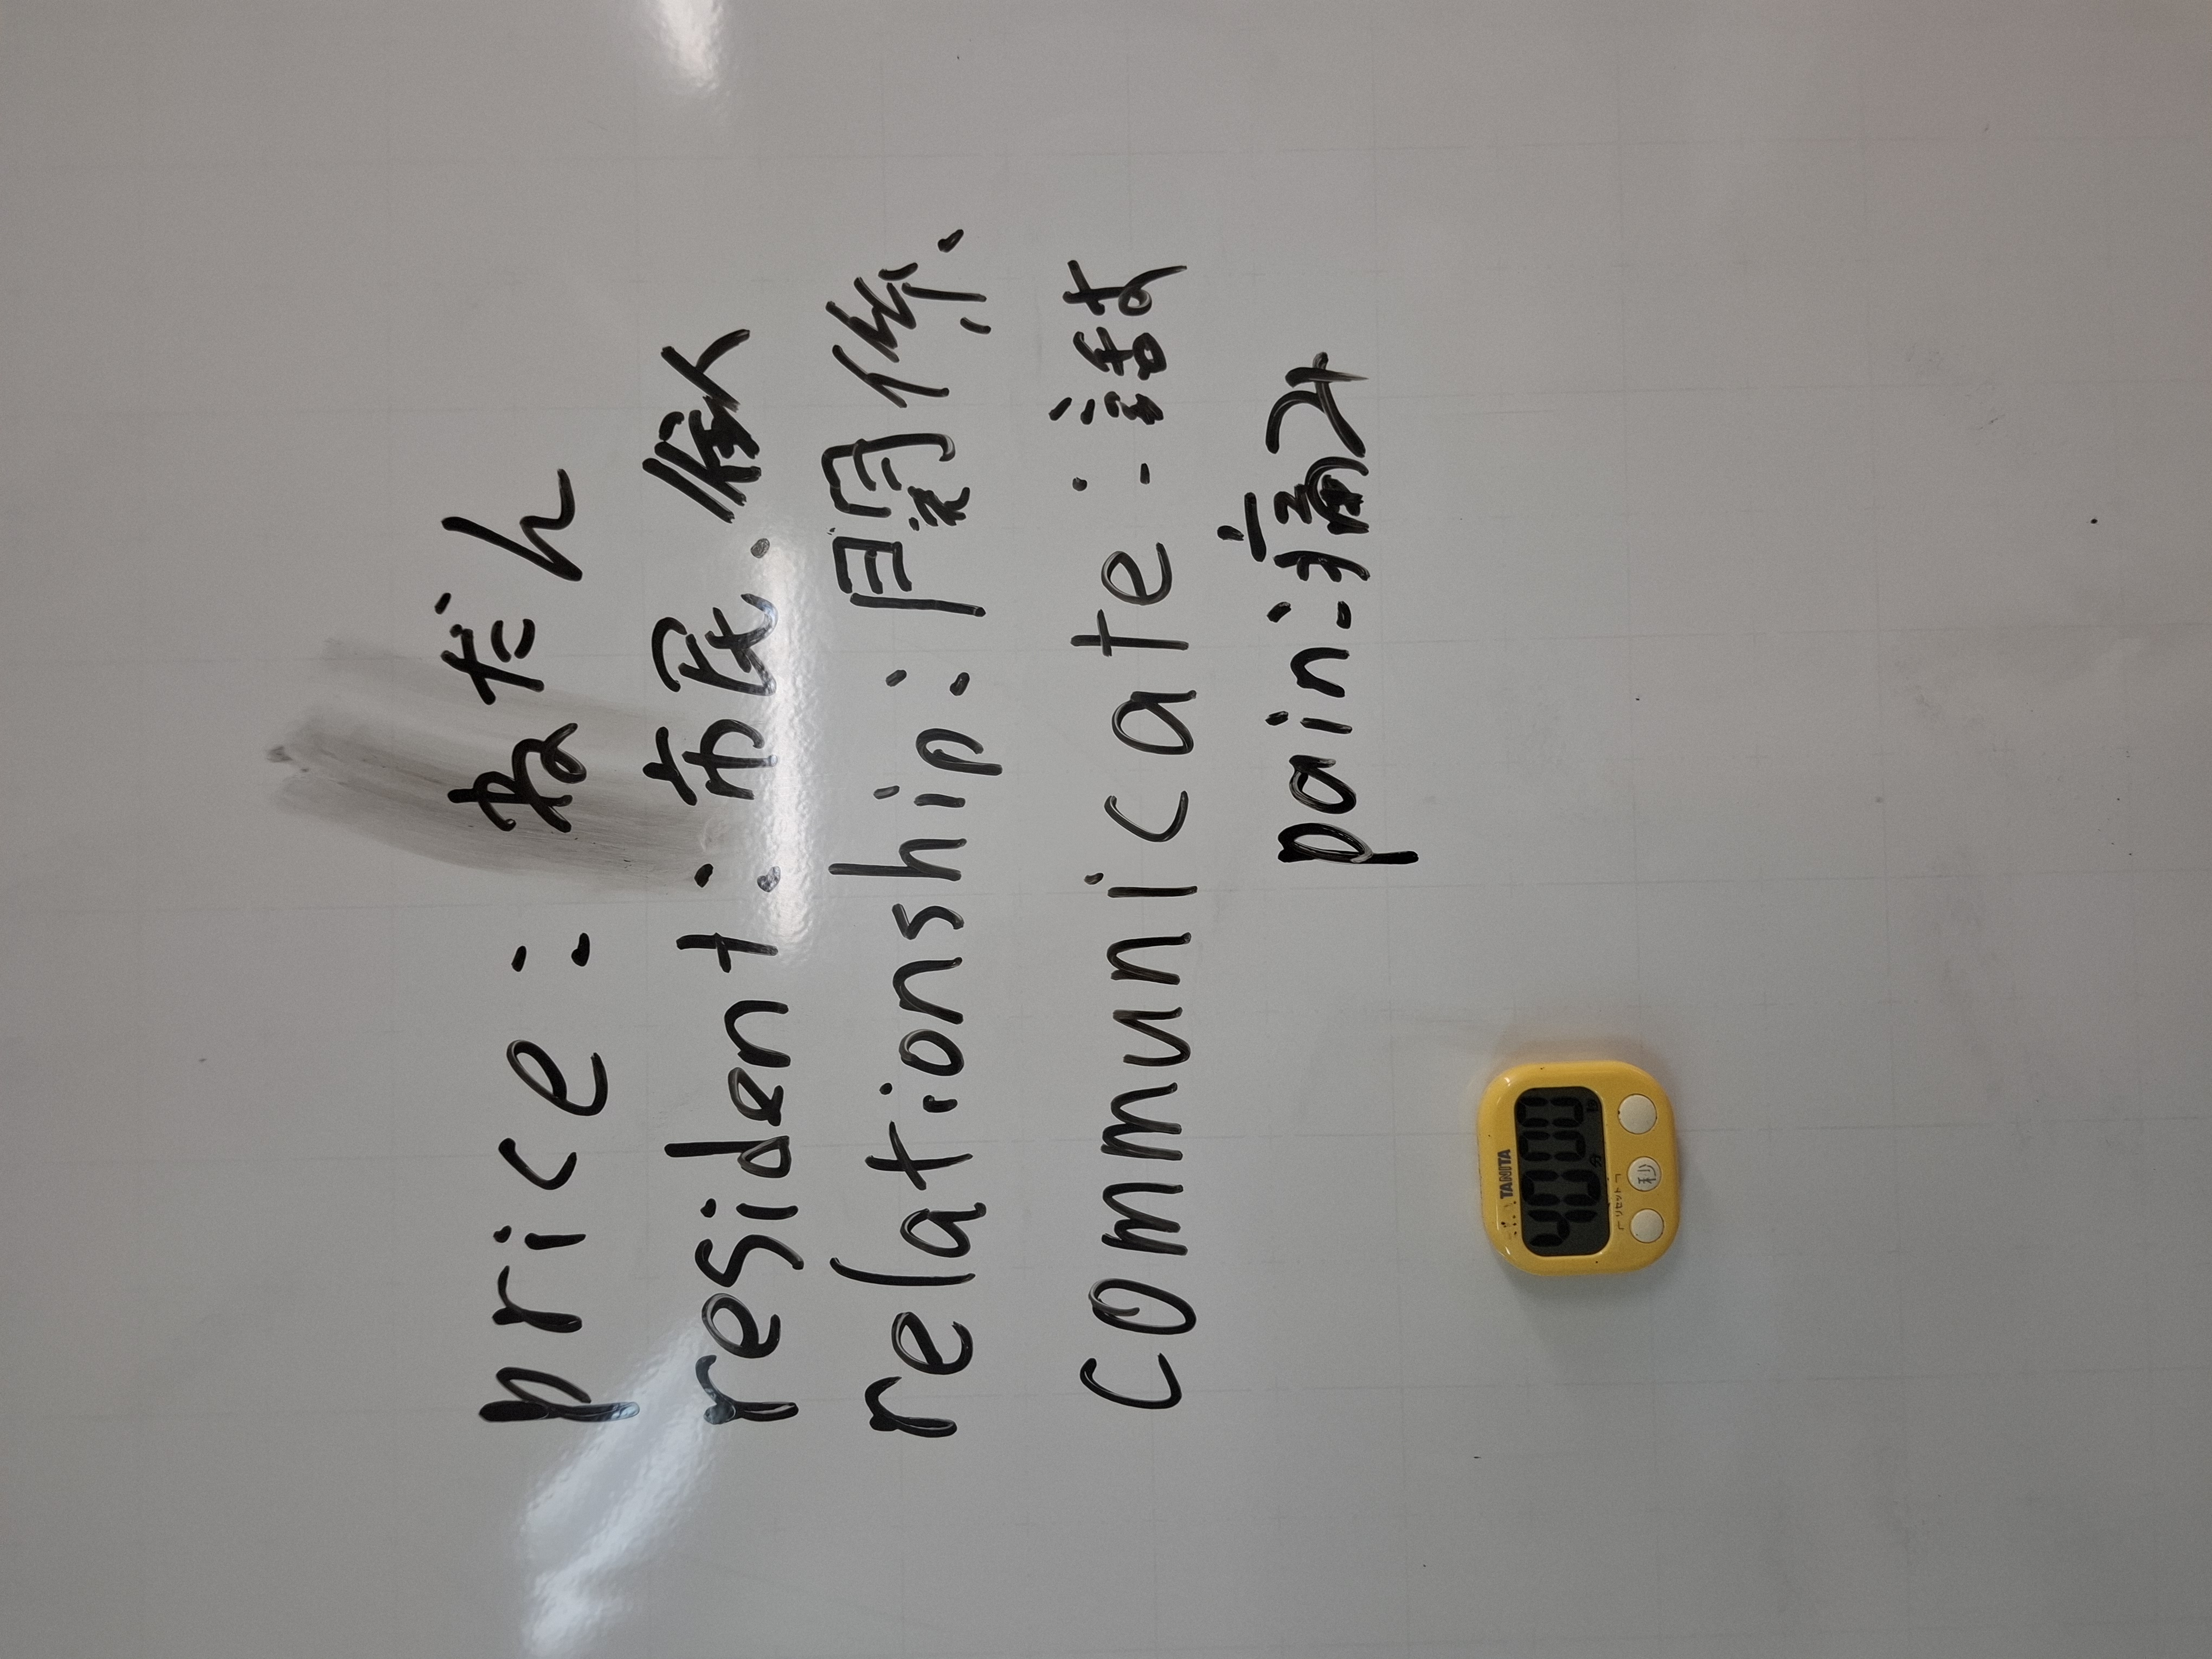 price : ねだん
resident : 市民.
relationship : 関係.
communicate : 話す
pain : 痛み
TANITA
40 00
分 秒
リセット
秒